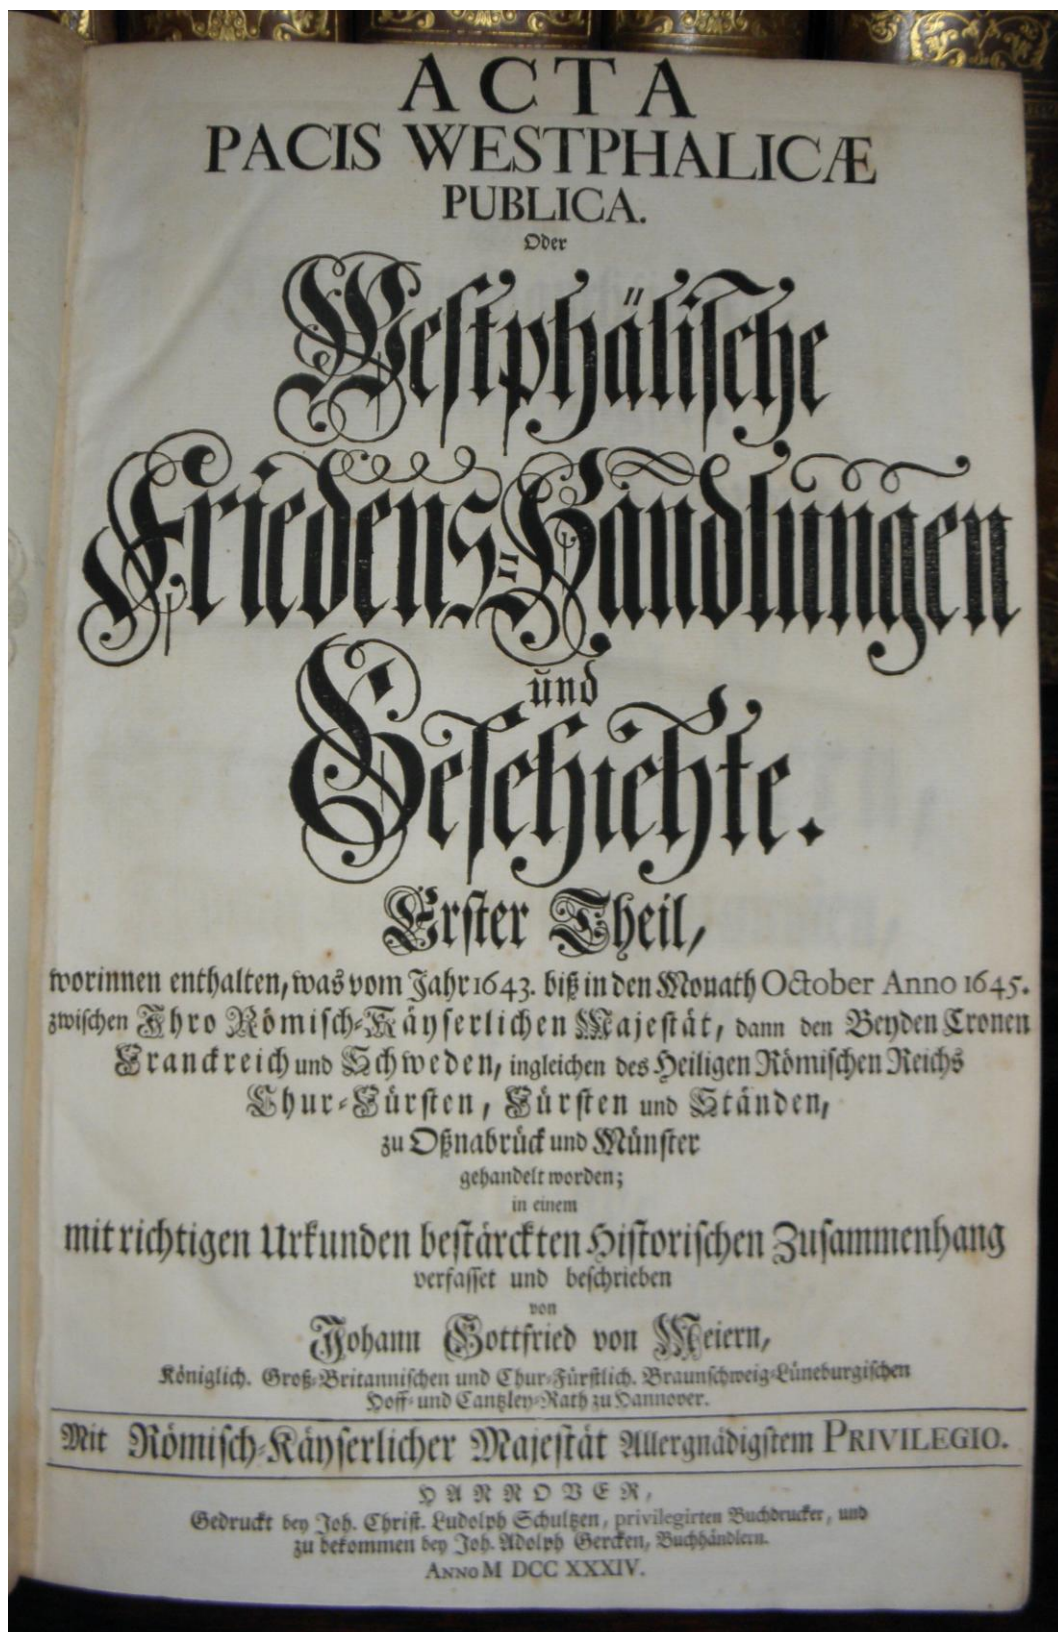 ACTA
PACIS WESTPHALICÆ
PUBLICA.
Oder
Westphälische
Friedens-Handlungen
und
Geschichte.
Erster Theil,
worinnen enthalten, was vom Jahr 1643. biß in den Monath October Anno 1645.
zwischen Ihro Römisch-Käyserlichen Majestät, dann den Beyden Cronen
Franckreich und Schweden, ingleichen des Heiligen Römischen Reichs
Chur-Fürsten, Fürsten und Ständen,
zu Oßnabrück und Münster
gehandelt worden;
in einem
mit richtigen Urkunden bestärckten Historischen Zusammenhang
verfasset und beschrieben
von
Johann Gottfried von Meiern,
Königlich. Groß-Britannischen und Chur-Fürstlich. Braunschweig-Lüneburgischen
Hoff- und Cantzley-Rath zu Hannover.
Mit Römisch-Käyserlicher Majestät Allergnädigstem PRIVILEGIO.
HANNOVER,
Gedruckt bey Joh. Christ. Ludolph Schultzen, privilegirten Buchdrucker, und
zu bekommen bey Joh. Adolph Gercken, Buchhändlern.
ANNO M DCC XXXIV.